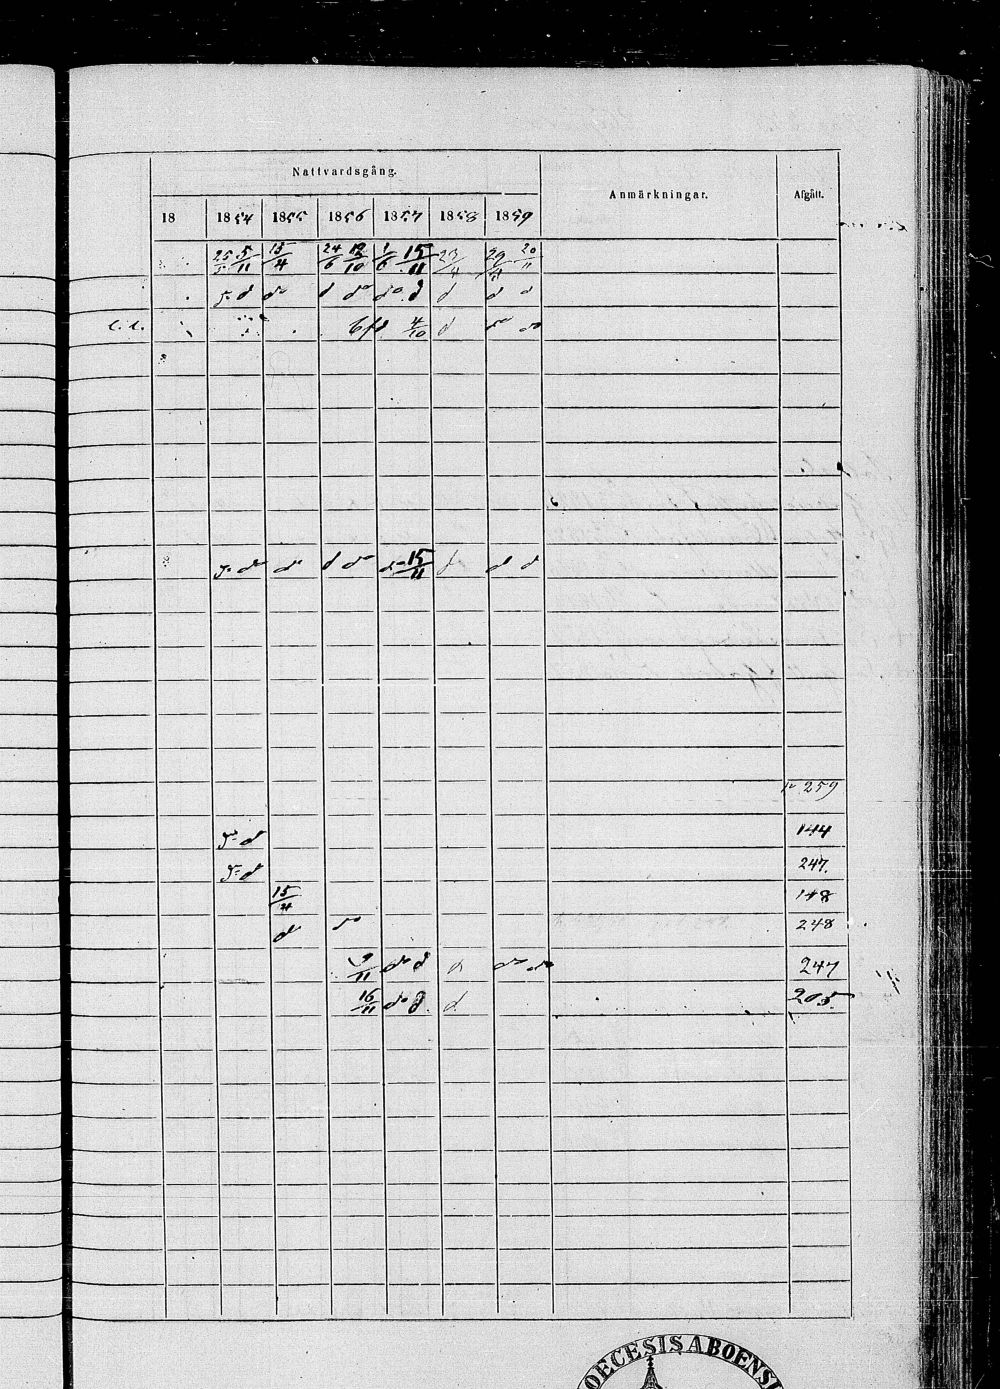 Nattvardsgång. Anmärkningar. Afgått.
18 1854 1855 1856 1857 1858 1859
25/5 5/11 15/4 24/6 12/10 1/6 15/11 23/4 29/4 20/11
d do d do do d d d d
4/10 d do do
do do d do do 15/11 d d
259
d 144
d 247.
15/4 148
d do 248
9/11 do d d do do 247
16/11 do d. d. 205.
OECESIS ABOENSI